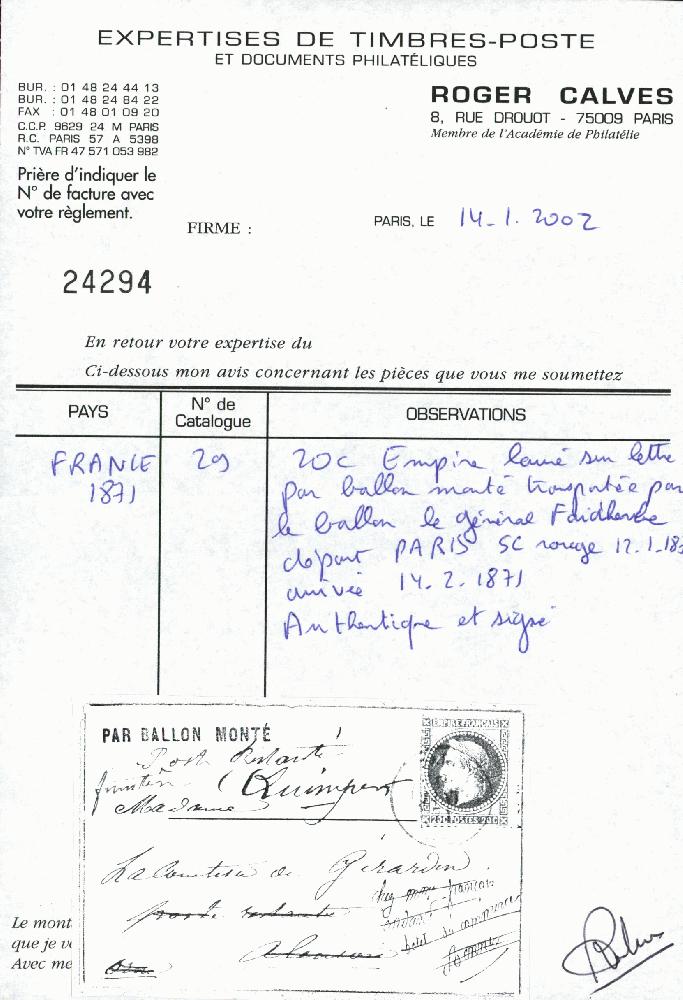 EXPERTISES DE TIMBRES-POSTE
ET DOCUMENTS PHILATÉLIQUES
BUR. : 01 48 24 44 13
BUR. : 01 48 24 84 22
FAX : 01 48 01 09 20
C.C.P. 9629 24 M PARIS
R.C. PARIS 57 A 5398
N° TVA FR 47 571 053 982
ROGER CALVES
8, RUE DROUOT - 75009 PARIS
Membre de l'Académie de Philatélie
Prière d'indiquer le
N° de facture avec
votre règlement.
FIRME :
PARIS, LE 14.1.2002
24294
En retour votre expertise du
Ci-dessous mon avis concernant les pièces que vous me soumettez
PAYS
N° de Catalogue
OBSERVATIONS
FRANCE
1871
29
20c Empire lauré sur lettre
par ballon monté transportée par
le ballon le général Faidherbe
départ PARIS SC rouge 12.1.18
arrivée 14.2.1871
Authentique et signé
PAR BALLON MONTÉ
EMPIRE FRANÇAIS
20C POSTES 20C
Poste Restante
Quimper
Madame
La Comtesse de Girardin
poste restante
Le mont
que je v
Avec me